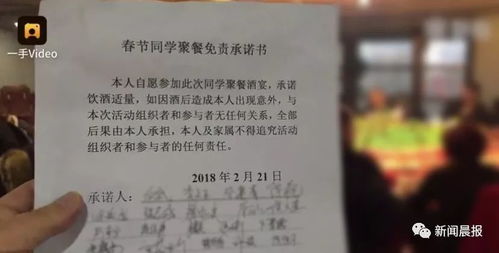 一手Video
春节同学聚餐免责承诺书
本人自愿参加此次同学聚餐酒宴，承诺
饮酒适量，如因酒后造成本人出现意外，与
本次活动组织者和参与者无任何关系，全部
后果由本人承担，本人及家属不得追究活动
组织者和参与者的任何责任。
2018 年 2 月 21 日
承诺人：
新闻晨报